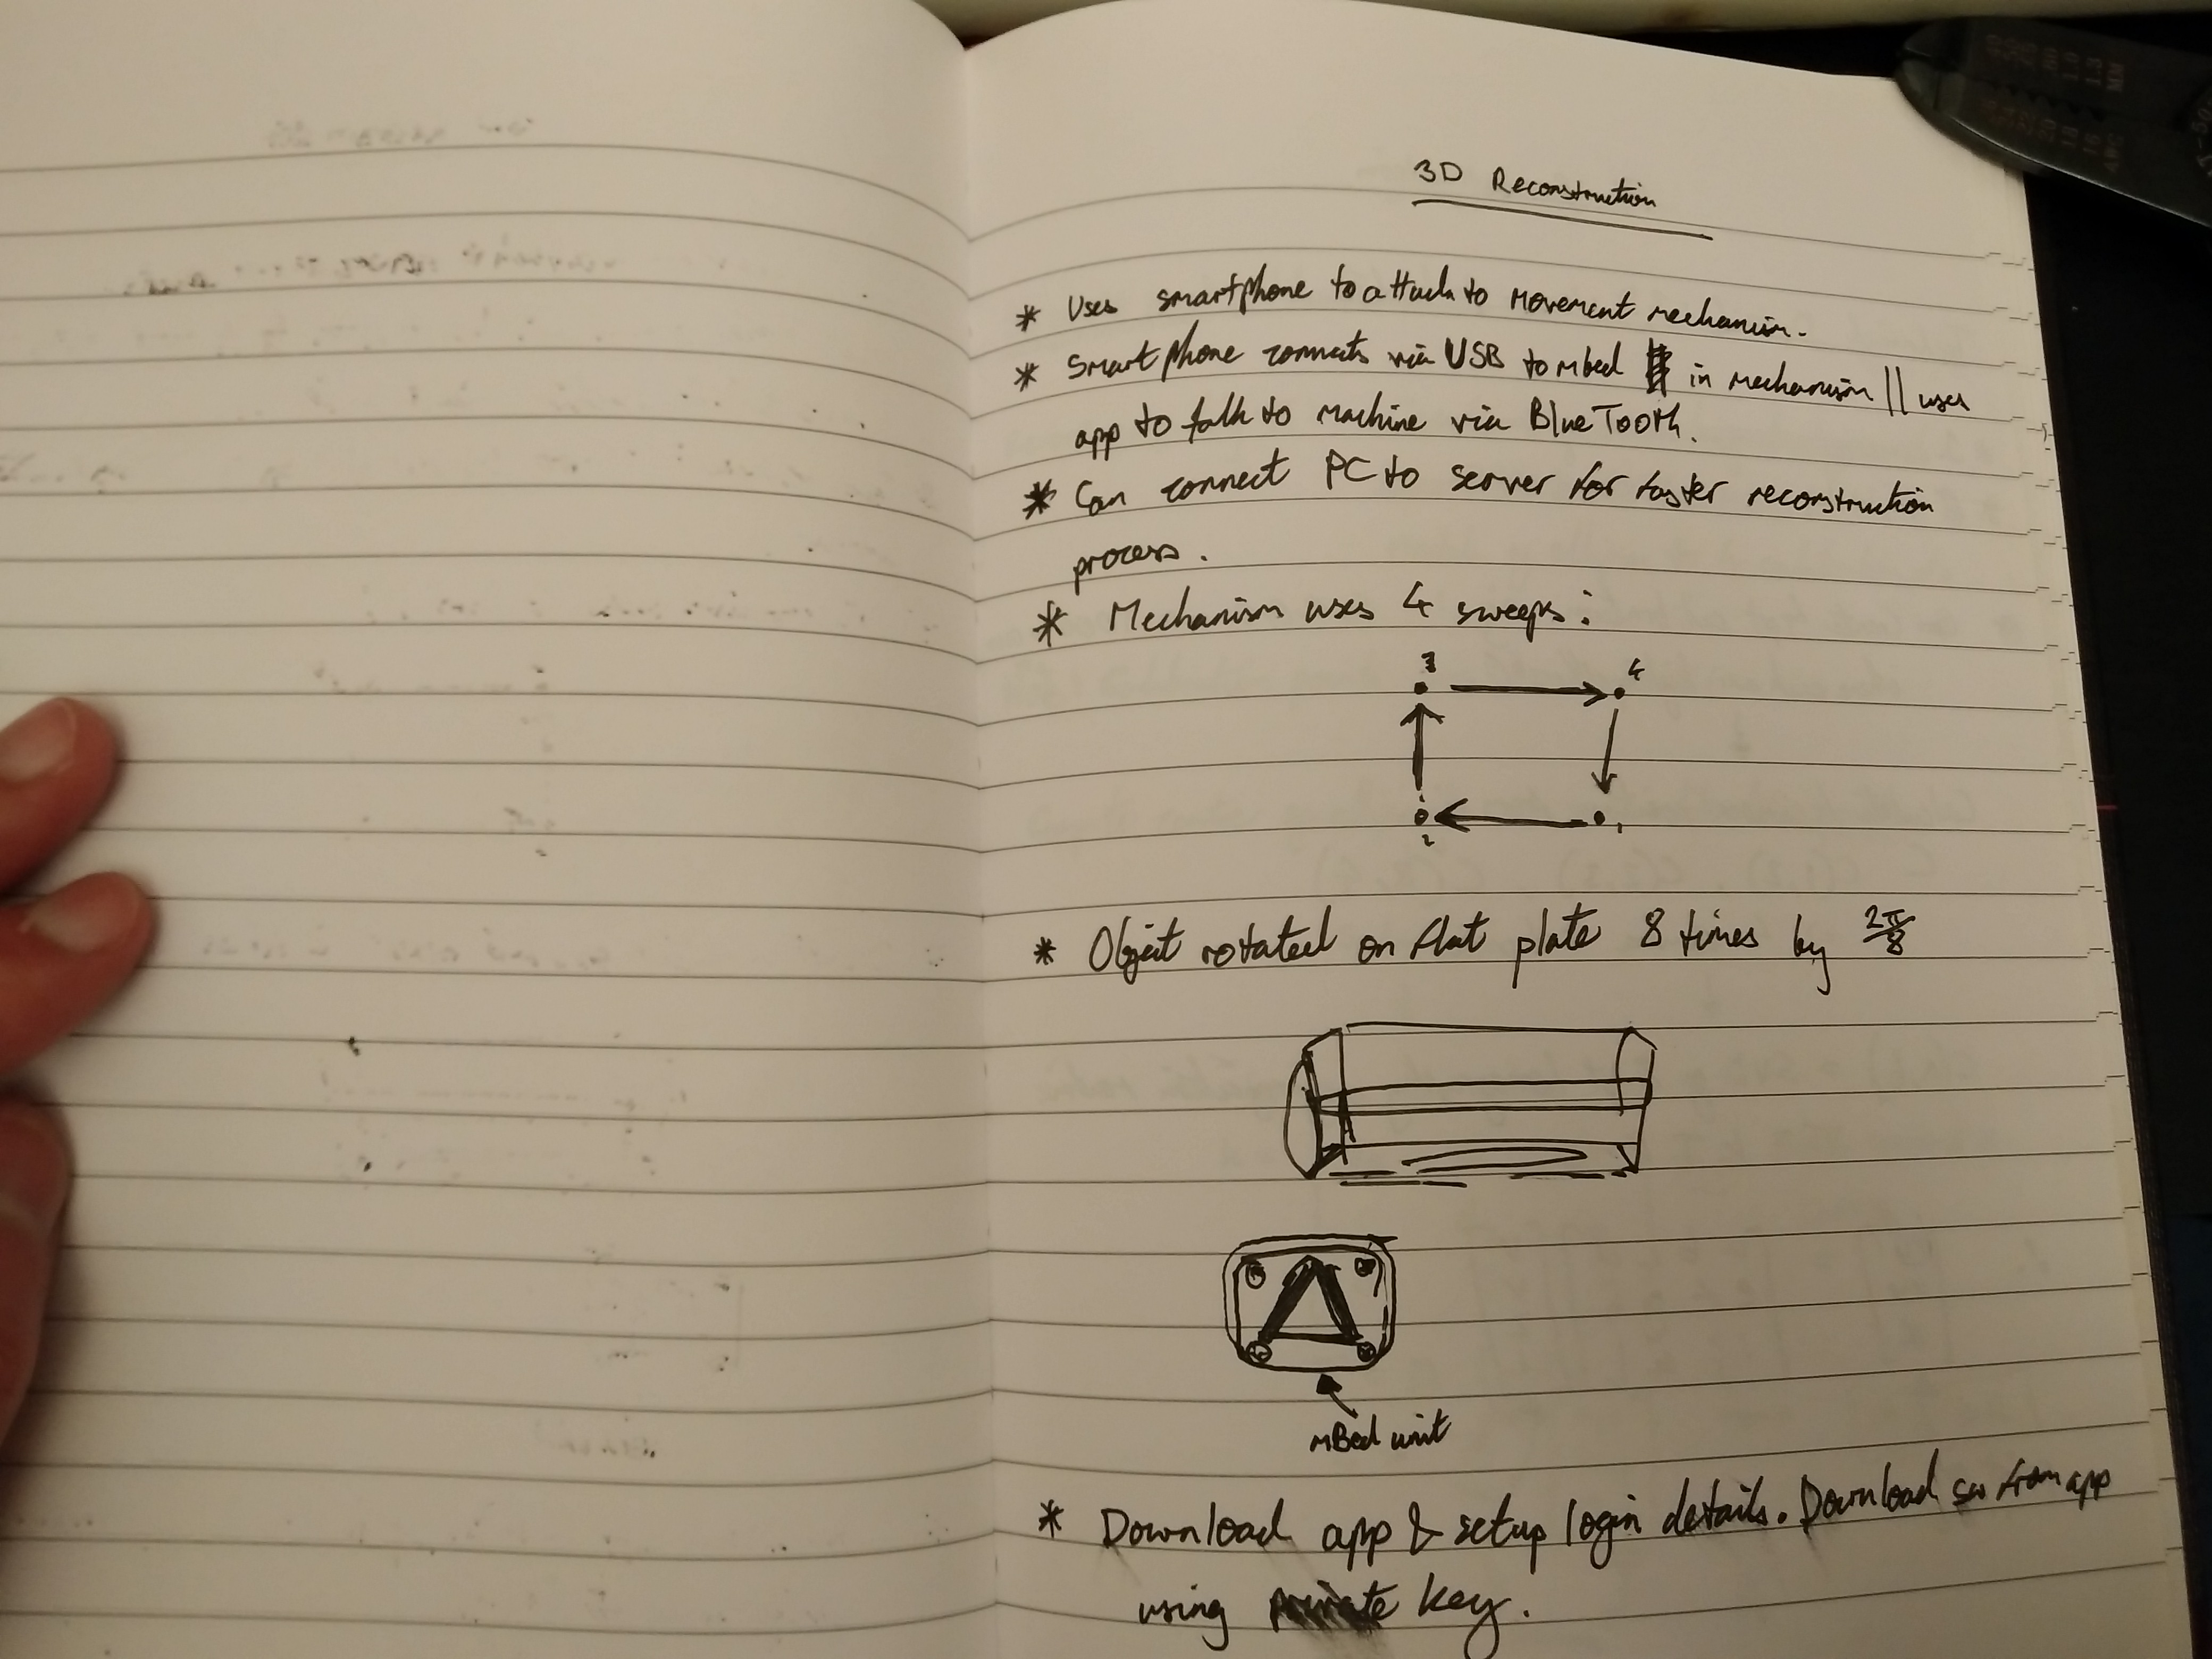 3D Reconstruction
* Uses smartphone to attach to movement mechanism.
* Smartphone connects via USB to mbed in mechanism || uses
app to talk to machine via BlueTooth.
* Can connect PC to server for faster reconstruction
process.
* Mechanism uses 4 sweeps:
3 4
2 1
* Object rotated on flat plate 8 times by 2π/8
mBed unit
* Download app & setup login details. Download sw from app
using private key.